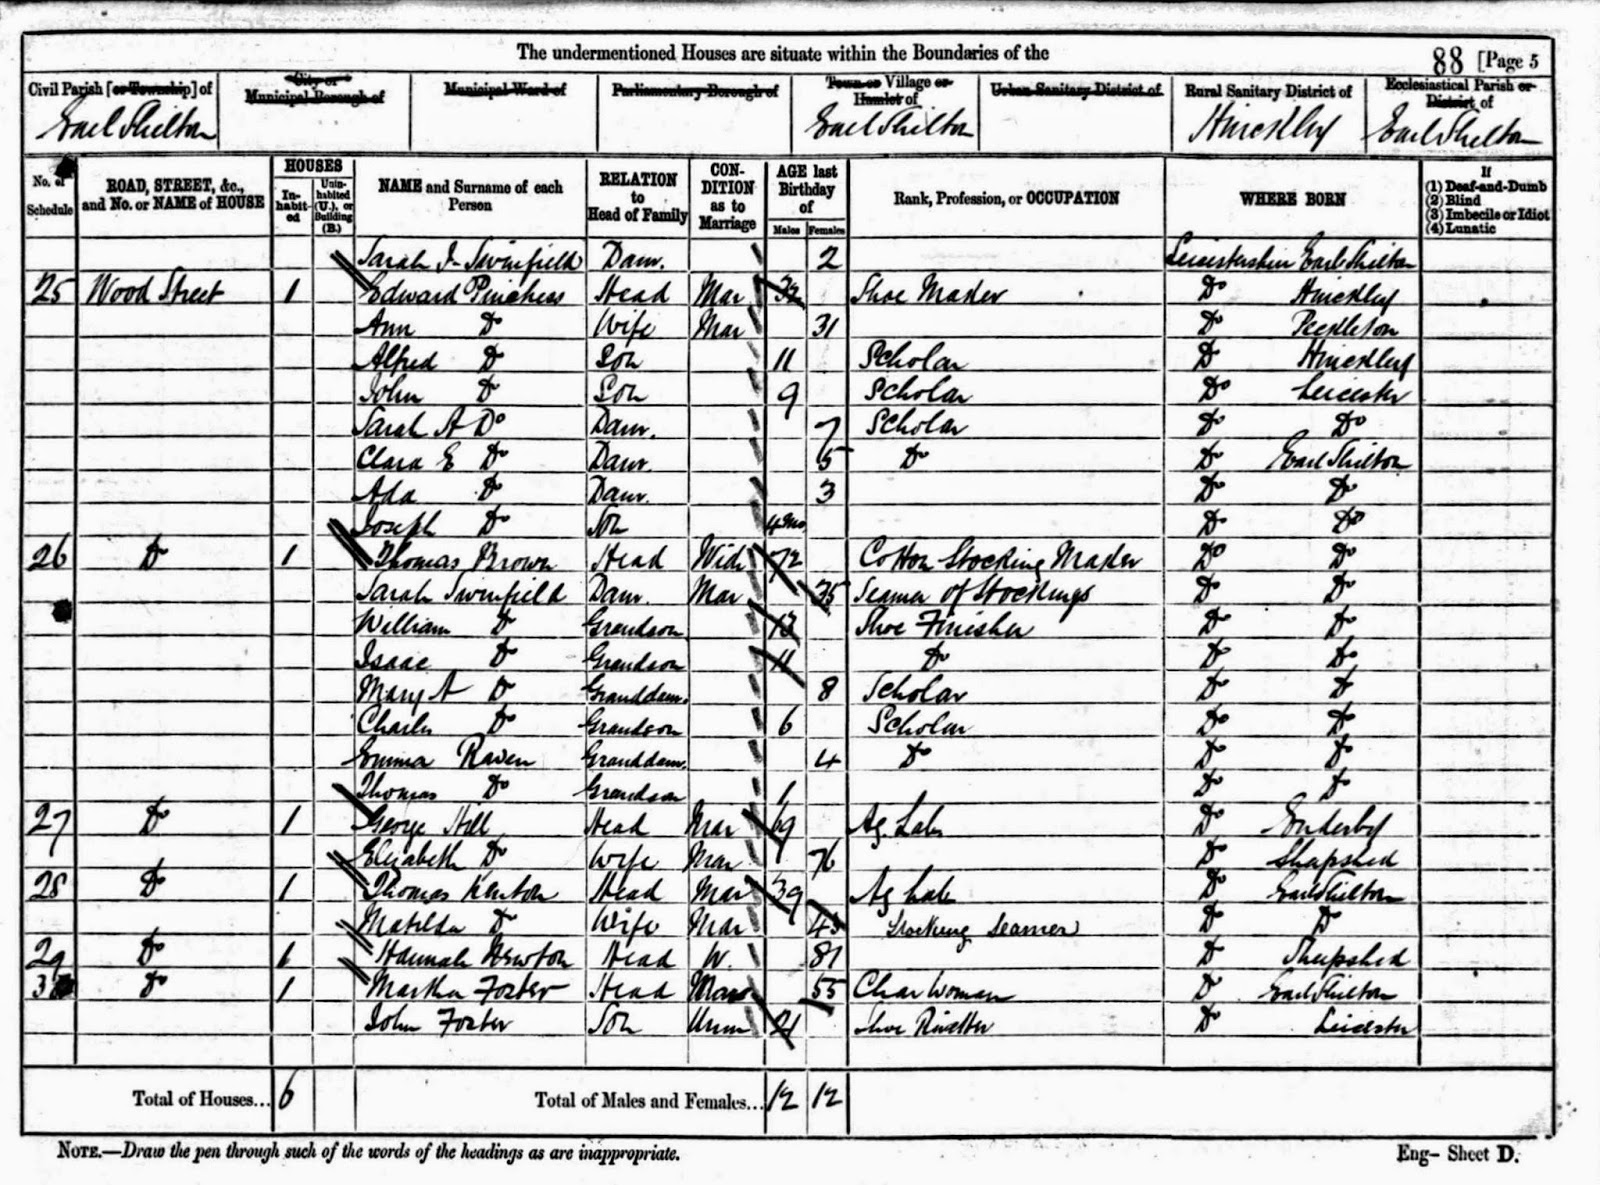 The undermentioned Houses are situate within the Boundaries of the
88 [Page 5
Civil Parish [or Township] of
Earl Shilton
City or Municipal Borough of
Municipal Ward of
Parliamentary Borough of
Town or Village or Hamlet of
Earl Shilton
Urban Sanitary District of
Rural Sanitary District of
Hinckley
Ecclesiastical Parish or District of
Earl Shilton
No. of Schedule
ROAD, STREET, &c., and No. or NAME of HOUSE
HOUSES
Inhabited
Uninhabited (U.), or Building (B.)
NAME and Surname of each Person
RELATION to Head of Family
CONDITION as to Marriage
AGE last Birthday of
Males Females
Rank, Profession, or OCCUPATION
WHERE BORN
If
(1) Deaf-and-Dumb
(2) Blind
(3) Imbecile or Idiot
(4) Lunatic
Sarah J Swinfield Daur. 2 Leicestershire Earl Shilton
25 Wood Street 1 Edward Pinchess Head Mar 32 Shoe Maker Do Hinckley
Ann Do Wife Mar 31 Do Peckleton
Alfred Do Son 11 Scholar Do Hinckley
John Do Son 9 Scholar Do Leicester
Sarah A Do Daur. 7 Scholar Do Do
Clara E Do Daur 5 Do Do Earl Shilton
Ada Do Daur. 3 Do Do
Joseph Do Son 4 Mo Do Do
26 Do 1 Thomas Brown Head Widr 72 Cotton Stocking Maker Do Do
Sarah Swinfield Daur. Mar 35 Seamer of Stockings Do Do
William Do Grandson 13 Shoe Finisher Do Do
Isaac Do Grandson 11 Do Do Do
Mary A Do Granddaur. 8 Scholar Do Do
Charles Do Grandson 6 Scholar Do Do
Emma Raven Granddaur. 4 Do Do Do
Thomas Do Grandson 1 Do Do
27 Do 1 George Hill Head Mar 69 Ag. Lab Do Enderby
Elizabeth Do Wife Mar 76 Do Shapshed
28 Do 1 Thomas Head Mar 39 Ag Lab Do Earl Shilton
Matilda Do Wife Mar 43 Stocking Seamer Do Do
29 Do 1 Hannah Newton Head W. 81 Do Shepshed
30 Do 1 Martha Foster Head Mar 55 Char Woman Do Earl Shilton
John Foster Son Unm 21 Shoe Rivetter Do Leicester
Total of Houses... 6
Total of Males and Females... 12 12
NOTE.—Draw the pen through such of the words of the headings as are inappropriate.
Eng- Sheet D.